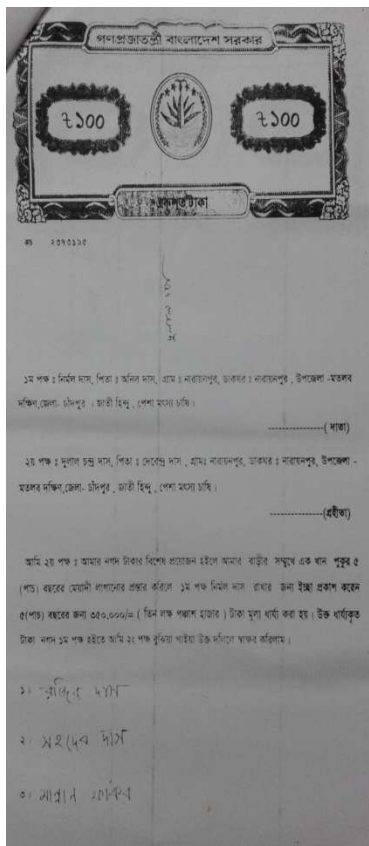 গণপ্রজাতন্ত্রী বাংলাদেশ সরকার
৳ ১০০ ৳ ১০০
একশত টাকা
কচ ২৩৭৩১৯৫
১ম পক্ষ ঃ নির্মল দাস, পিতা ঃ অনিল দাস, গ্রাম ঃ নারায়নপুর, ডাকঘর ঃ নারায়নপুর , উপজেলা -মতলব
দক্ষিন,জেলা- চাঁদপুর । জাতী হিন্দু , পেশা মৎস্য চাষি।
---------------( দাতা)
২য় পক্ষ ঃ দুলাল চন্দ্র দাস, পিতা ঃ দেবেন্দ্র দাস , গ্রামঃ নারায়নপুর, ডাকঘর ঃ নারায়নপুর, উপজেলা -
মতলব দক্ষিন,জেলা- চাঁদপুর , জাতী হিন্দু , পেশা মৎস্য চাষি।
--------------(গ্রহীতা)
আমি ২য় পক্ষ ঃ আমার নগদ টাকার বিশেষ প্রয়োজন হইলে আমার বাড়ীর সম্মুখে এক খান পুকুর ৫
(পাচ) বছরের মেয়াদী লাগানোর প্রস্তাব করিলে ১ম পক্ষ নির্মল দাস রাখার জন্য ইচ্ছা প্রকাশ করেন
৫(পাচ) বছরের জন্য ৩৫০,০০০/= ( তিন লক্ষ পঞ্চাশ হাজার ) টাকা মূল্য ধার্য্য করা হয়। উক্ত ধার্য্যকৃত
টাকা নগদ ১ম পক্ষ হইতে আমি ২ং পক্ষ বুঝিয়া পাইয়া উক্ত দলিলে স্বাক্ষর করিলাম।
১। দাস
২। সহদেব দাস
৩। মান্নান ফকির